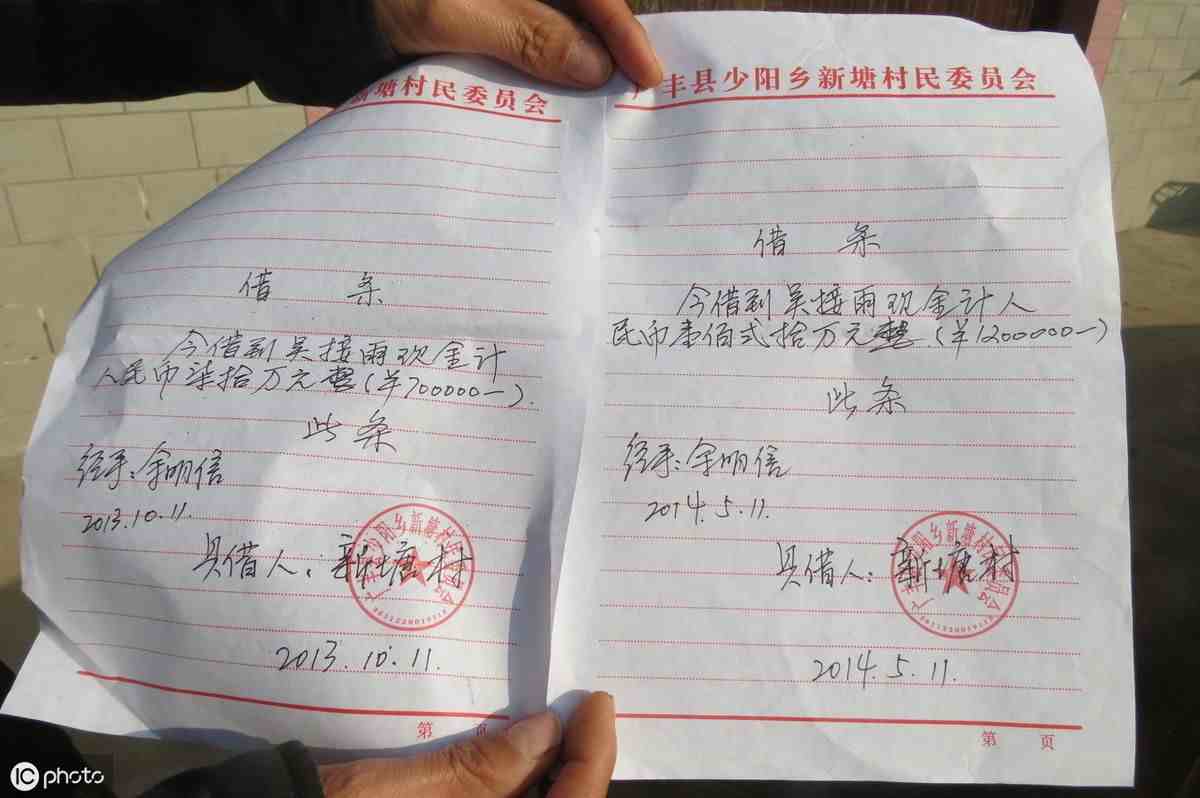 新塘村民委员会
借 条
今借到吴接雨现金计
人民币柒拾万元整(¥700000—).
此条
经手:余明信
2013.10.11.
具借人:新塘村
少阳乡新塘村
2013.10.11.
第 页
广丰县少阳乡新塘村民委员会
借 条
今借到吴接雨现金计人
民币壹佰弍拾万元整.(¥1200000—)
此条
经手:余明信
2014.5.11.
具借人:新塘村
阳乡新塘村
2014.5.11.
第 页
IC photo